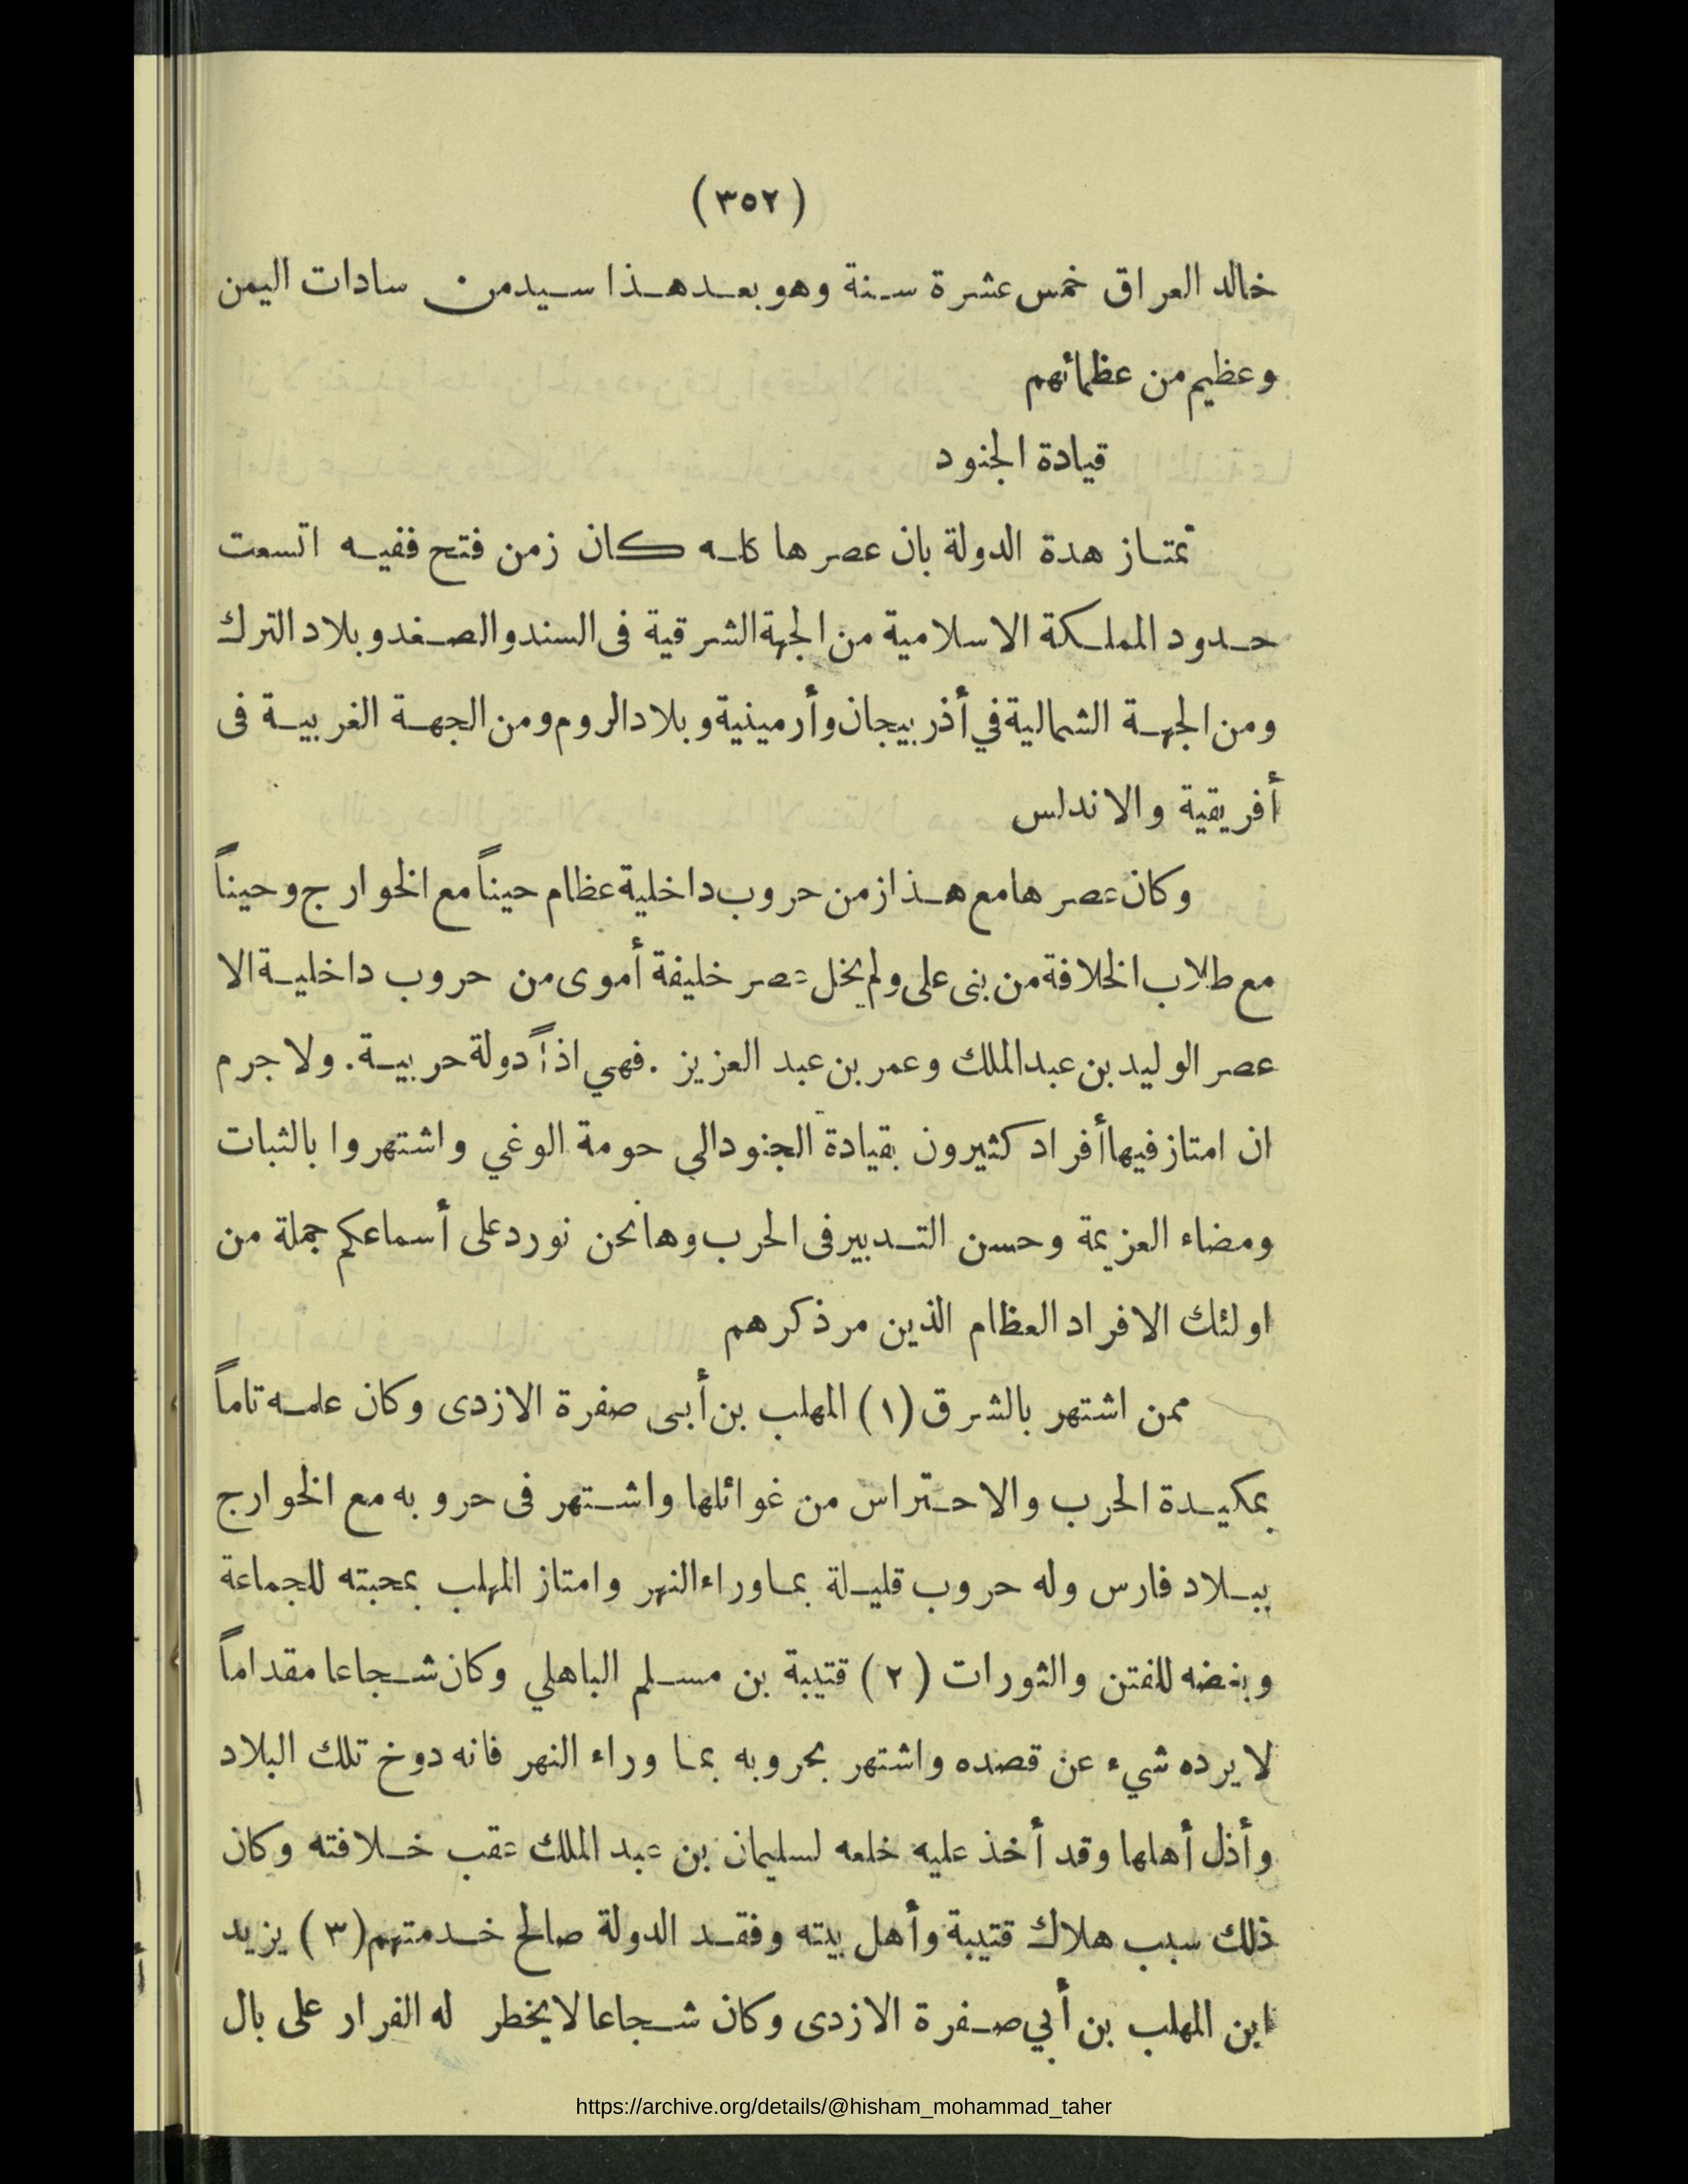 (٣٥٢)
خالد العراق خمس عشرة سنة وهو بعد هذا سيد من سادات اليمن
وعظيم من عظمائهم
قيادة الجنود
تمتاز هدة الدولة بان عصرها كله كان زمن فتح ففيه اتسعت
حدود المملكة الاسلامية من الجهة الشرقية فى السند والصغد وبلاد الترك
ومن الجهة الشمالية في أذربيجان وأرمينية وبلاد الروم ومن الجهة الغربية فى
أفريقية والاندلس
وكان عصرها مع هذا زمن حروب داخلية عظام حيناً مع الخوارج وحيناً
مع طلاب الخلافة من بنى على ولم يخل عصر خليفة أموى من حروب داخلية الا
عصر الوليد بن عبد الملك وعمر بن عبد العزيز . فهي اذاً دولة حربية. ولا جرم
ان امتاز فيها أفراد كثيرون بقيادة الجنود الي حومة الوغي واشتهروا بالثبات
ومضاء العزيمة وحسن التدبير فى الحرب وها نحن نورد على أسماعكم جملة من
اولئك الافراد العظام الذين مر ذكرهم
ممن اشتهر بالشرق (١) المهلب بن أبى صفرة الازدى وكان علمه تاماً
بمكيدة الحرب والاحتراس من غوائلها واشتهر فى حروبه مع الخوارج
ببلاد فارس وله حروب قليلة بما وراء النهر وامتاز المهلب بمحبته للجماعة
وبغضه للفتن والثورات (٢) قتيبة بن مسلم الباهلي وكان شجاعا مقداماً
لا يرده شيء عن قصده واشتهر بحروبه بما وراء النهر فانه دوخ تلك البلاد
وأذل أهلها وقد أخذ عليه خلعه لسليمان بن عبد الملك عقب خلافته وكان
ذلك سبب هلاك قتيبة وأهل بيته وفقد الدولة صالح خدمتهم (٣) يزيد
ابن المهلب بن أبي صفرة الازدى وكان شجاعا لا يخطر له الفرار على بال
https://archive.org/details/@hisham_mohammad_taher